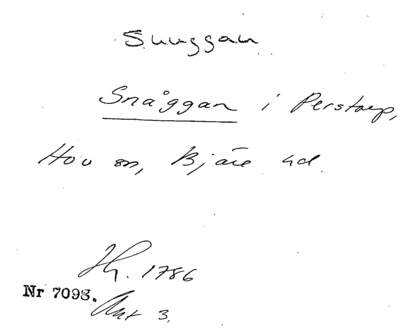 Snuggan
Snåggan i Perstorp,
Hov sn, Bjäre hd.
Jh. 1786
Nr 7093.
Akt 3.